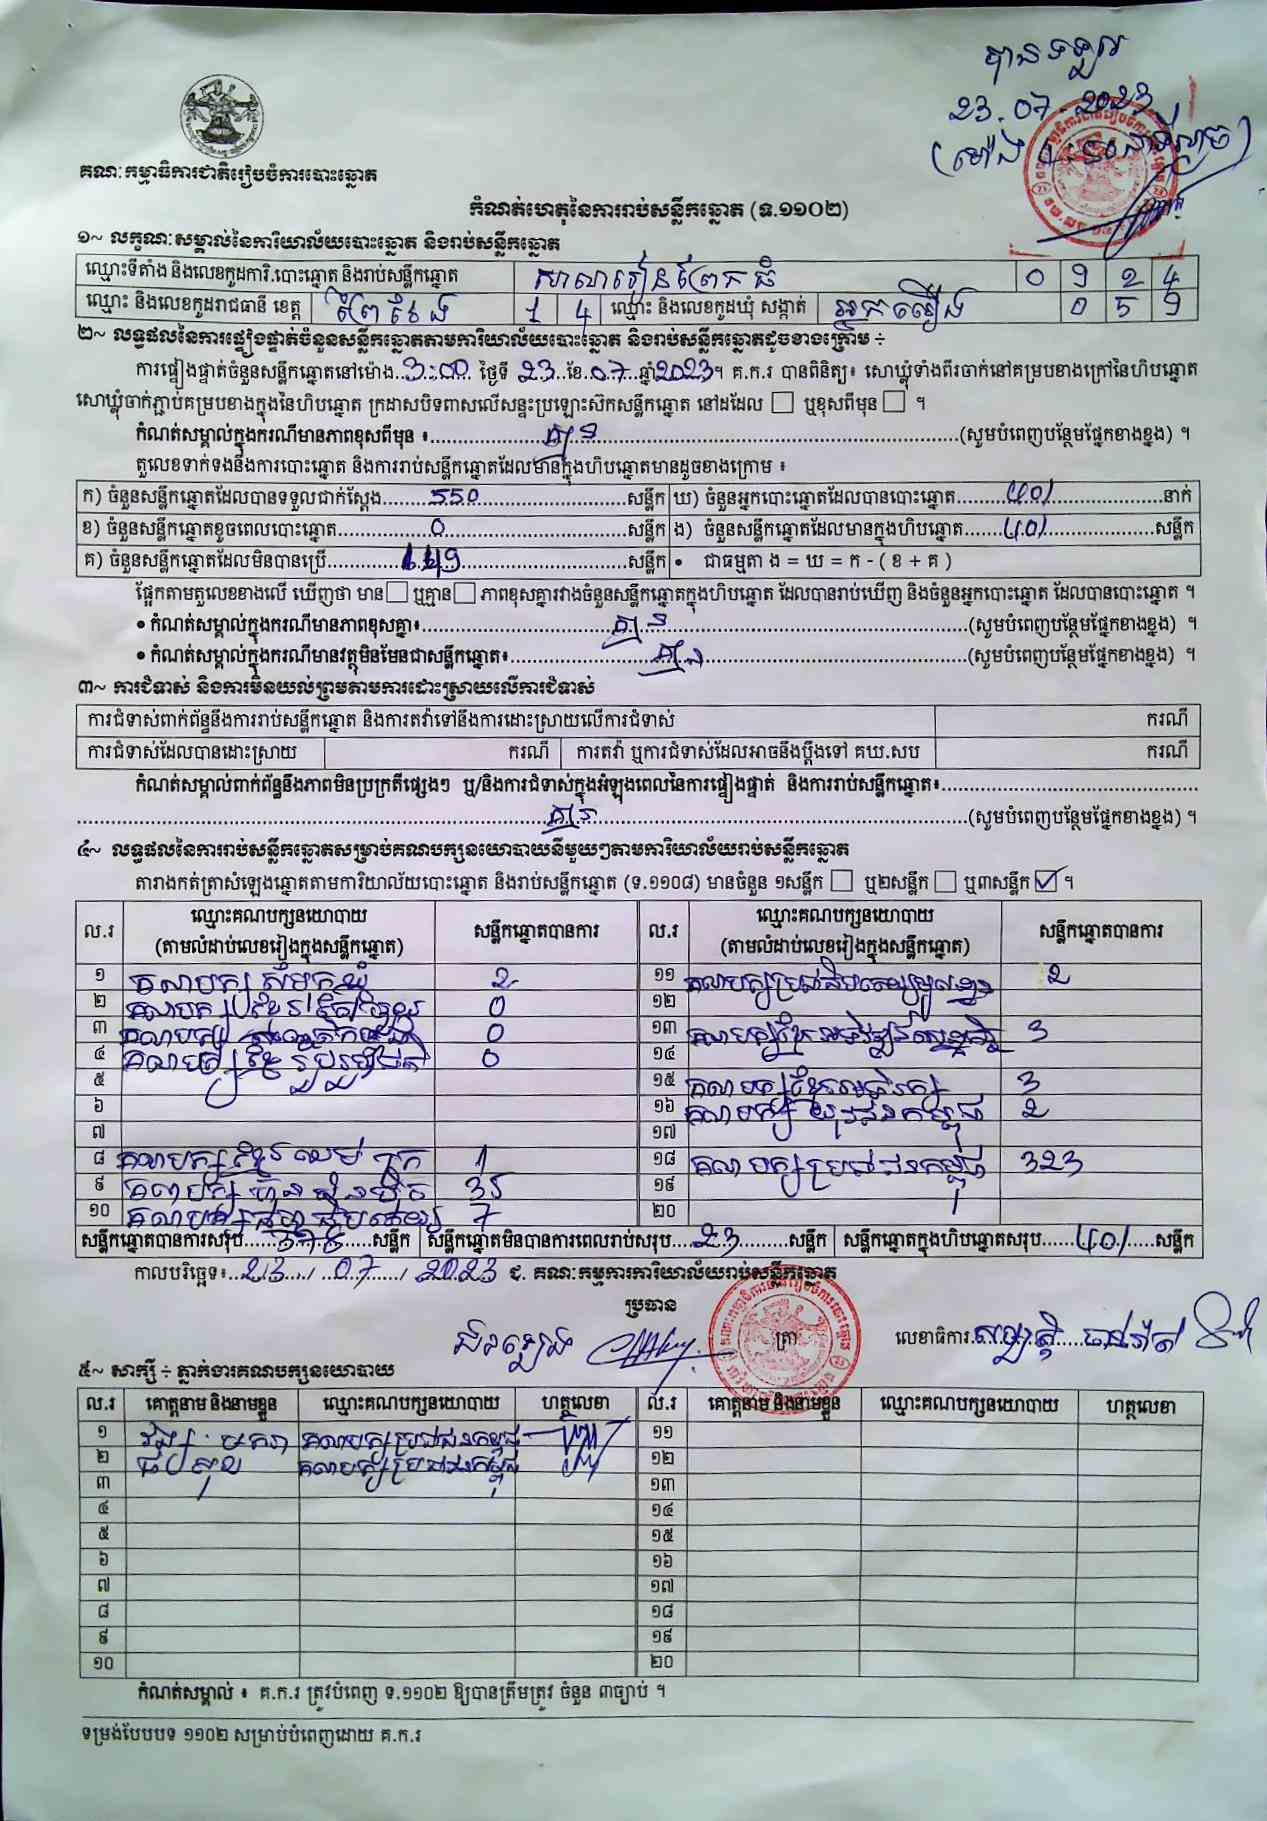 បានទទួល
23.07.2023
គណៈកម្មាធិការជាតិរៀបចំការបោះឆ្នោត
កំណត់ហេតុនៃការរាប់សន្លឹកឆ្នោត (ទ.១១០២)
១~ លក្ខណៈសម្គាល់នៃការិយាល័យបោះឆ្នោត និងរាប់សន្លឹកឆ្នោត
ឈ្មោះទីតាំង និងលេខកូដការិ.បោះឆ្នោត និងរាប់សន្លឹកឆ្នោត សាលារៀនព្រែកធំ 0 9 2 4
ឈ្មោះ និងលេខកូដរាជធានី ខេត្ត ព្រៃវែង 1 4 ឈ្មោះ និងលេខកូដឃុំ សង្កាត់ អ្នកលឿង 0 5 9
២~ លទ្ធផលនៃការផ្ទៀងផ្ទាត់ចំនួនសន្លឹកឆ្នោតតាមការិយាល័យបោះឆ្នោត និងរាប់សន្លឹកឆ្នោតដូចខាងក្រោម ÷
ការផ្ទៀងផ្ទាត់ចំនួនសន្លឹកឆ្នោតនៅម៉ោង..3:00... ថ្ងៃទី 23 ខែ.07..ឆ្នាំ2023។ គ.ក.រ បានពិនិត្យ៖ សោឃ្លុំទាំងពីរចាក់នៅគម្របខាងក្រៅនៃហិបឆ្នោត
សោឃ្លុំចាក់ភ្ជាប់គម្របខាងក្នុងនៃហិបឆ្នោត ក្រដាសបិទពាសលើសន្ទះប្រឡោះស៊កសន្លឹកឆ្នោត នៅដដែល ☐ ឬខុសពីមុន ☐ ។
កំណត់សម្គាល់ក្នុងករណីមានភាពខុសពីមុន ៖ គ្មាន (សូមបំពេញបន្ថែមផ្នែកខាងខ្នង) ។
តួលេខទាក់ទងនឹងការបោះឆ្នោត និងការរាប់សន្លឹកឆ្នោតដែលមានក្នុងហិបឆ្នោតមានដូចខាងក្រោម ៖
ក) ចំនួនសន្លឹកឆ្នោតដែលបានទទួលជាក់ស្តែង 550 សន្លឹក ឃ) ចំនួនអ្នកបោះឆ្នោតដែលបានបោះឆ្នោត 401 នាក់
ខ) ចំនួនសន្លឹកឆ្នោតខូចពេលបោះឆ្នោត 0 សន្លឹក ង) ចំនួនសន្លឹកឆ្នោតដែលមានក្នុងហិបឆ្នោត 401 សន្លឹក
គ) ចំនួនសន្លឹកឆ្នោតដែលមិនបានប្រើ 149 សន្លឹក • ជាធម្មតា ង = ឃ = ក - ( ខ + គ )
ផ្អែកតាមតួលេខខាងលើ ឃើញថា មាន ☐ ឬគ្មាន ☐ ភាពខុសគ្នារវាងចំនួនសន្លឹកឆ្នោតក្នុងហិបឆ្នោត ដែលបានរាប់ឃើញ និងចំនួនអ្នកបោះឆ្នោត ដែលបានបោះឆ្នោត ។
• កំណត់សម្គាល់ក្នុងករណីមានភាពខុសគ្នា៖ គ្មាន (សូមបំពេញបន្ថែមផ្នែកខាងខ្នង) ។
• កំណត់សម្គាល់ក្នុងករណីមានវត្ថុមិនមែនជាសន្លឹកឆ្នោត៖ គ្មាន (សូមបំពេញបន្ថែមផ្នែកខាងខ្នង) ។
៣~ ការជំទាស់ និងការមិនយល់ព្រមតាមការដោះស្រាយលើការជំទាស់
ការជំទាស់ពាក់ព័ន្ធនឹងការរាប់សន្លឹកឆ្នោត និងការតវ៉ាទៅនឹងការដោះស្រាយលើការជំទាស់ ករណី
ការជំទាស់ដែលបានដោះស្រាយ ករណី ការតវ៉ា ឬការជំទាស់ដែលអាចនឹងប្តឹងទៅ គឃ.សប ករណី
កំណត់សម្គាល់ពាក់ព័ន្ធនឹងភាពមិនប្រក្រតីផ្សេងៗ ឬ/និងការជំទាស់ក្នុងអំឡុងពេលនៃការផ្ទៀងផ្ទាត់ និងការរាប់សន្លឹកឆ្នោត៖
គ្មាន (សូមបំពេញបន្ថែមផ្នែកខាងខ្នង) ។
៤~ លទ្ធផលនៃការរាប់សន្លឹកឆ្នោតសម្រាប់គណបក្សនយោបាយនីមួយៗតាមការិយាល័យរាប់សន្លឹកឆ្នោត
តារាងកត់ត្រាសំឡេងឆ្នោតតាមការិយាល័យបោះឆ្នោត និងរាប់សន្លឹកឆ្នោត (ទ.១១០៨) មានចំនួន ១សន្លឹក ☐ ឬ២សន្លឹក ☐ ឬ៣សន្លឹក ☑ ។
ល.រ ឈ្មោះគណបក្សនយោបាយ (តាមលំដាប់លេខរៀងក្នុងសន្លឹកឆ្នោត) សន្លឹកឆ្នោតបានការ ល.រ ឈ្មោះគណបក្សនយោបាយ (តាមលំដាប់លេខរៀងក្នុងសន្លឹកឆ្នោត) សន្លឹកឆ្នោតបានការ
១ គណបក្ស សំបុកឃ្មុំ 2 ១១ គណបក្សប្រជាធិបតេយ្យមូលដ្ឋាន 2
២ គណបក្ស 0 ១២
៣ គណបក្ស 0 ១៣ គណបក្សខ្មែរអភិវឌ្ឍន៍សេដ្ឋកិច្ច 3
៤ គណបក្សខ្មែររួបរួមជាតិ 0 ១៤
៥ ១៥ គណបក្សខ្មែរអភិរក្ស 3
៦ ១៦ គណបក្ស យុវជនកម្ពុជា 2
៧ ១៧
៨ គណបក្ស ខ្មែរ ឈប់ក្រ 1 ១៨ គណបក្សប្រជាជនកម្ពុជា 323
៩ គណបក្ស ហ៊្វុនស៊ិនប៉ិច 35 ១៩
១០ គណបក្ស 7 ២០
សន្លឹកឆ្នោតបានការសរុប 378 សន្លឹក សន្លឹកឆ្នោតមិនបានការពេលរាប់សរុប 23 សន្លឹក សន្លឹកឆ្នោតក្នុងហិបឆ្នោតសរុប 401 សន្លឹក
កាលបរិច្ឆេទ៖ 23 / 07 / 2023 ជ. គណៈកម្មការការិយាល័យរាប់សន្លឹកឆ្នោត
ប្រធាន
ត្រា លេខាធិការ
៥~ សាក្សី ÷ ភ្នាក់ងារគណបក្សនយោបាយ
ល.រ គោត្តនាម និងនាមខ្លួន ឈ្មោះគណបក្សនយោបាយ ហត្ថលេខា ល.រ គោត្តនាម និងនាមខ្លួន ឈ្មោះគណបក្សនយោបាយ ហត្ថលេខា
១ មករា គណបក្សប្រជាជនកម្ពុជា ១១
២ គណបក្សប្រជាជនកម្ពុជា ១២
៣ ១៣
៤ ១៤
៥ ១៥
៦ ១៦
៧ ១៧
៨ ១៨
៩ ១៩
១០ ២០
កំណត់សម្គាល់ ៖ គ.ក.រ ត្រូវបំពេញ ទ.១១០២ ឱ្យបានត្រឹមត្រូវ ចំនួន ៣ច្បាប់ ។
ទម្រង់បែបបទ ១១០២ សម្រាប់បំពេញដោយ គ.ក.រ